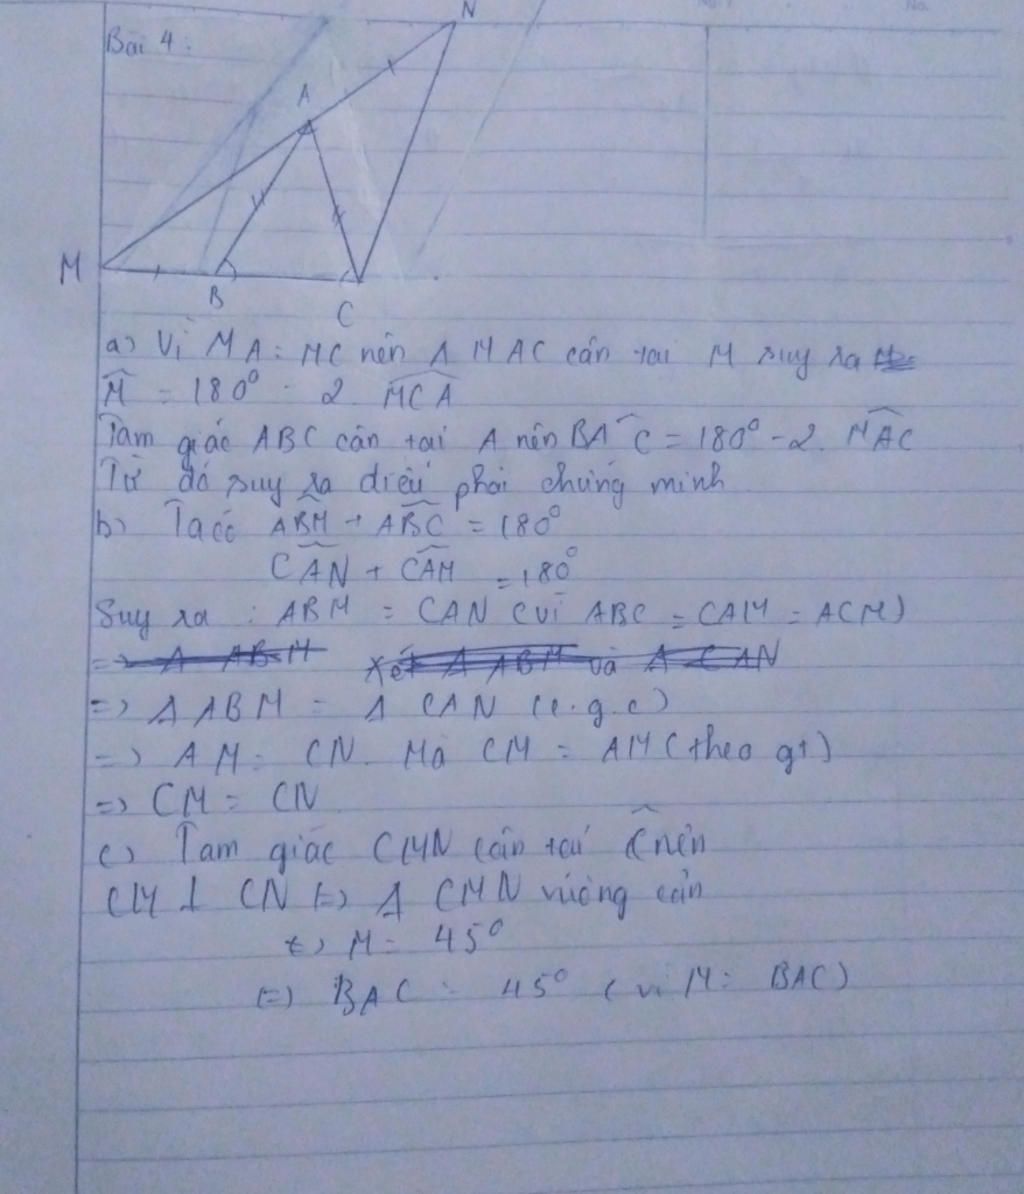 N
Bài 4:
A
M
B
C
a) Vì MA = MC nên Δ MAC cân tại M suy ra
M̂ = 180° - 2. MCA
Tam giác ABC cân tại A nên BAC = 180° - 2. MAC
Từ đó suy ra điều phải chứng minh
b) Ta có ABM + ABC = 180°
CAN + CAM = 180°
Suy ra : ABM = CAN (vì ABC = CAM = ACM)
=> Δ ABM Xét Δ ABM và Δ CAN
=> Δ ABM = Δ CAN (c.g.c)
=> AM = CN. Mà CM = AM (theo gt)
=> CM = CN
c) Tam giác CMN cân tại Ĉ nên
CM ⊥ CN <=> Δ CMN vuông cân
<=> M = 45°
<=> BAC = 45° (vì M = BAC)